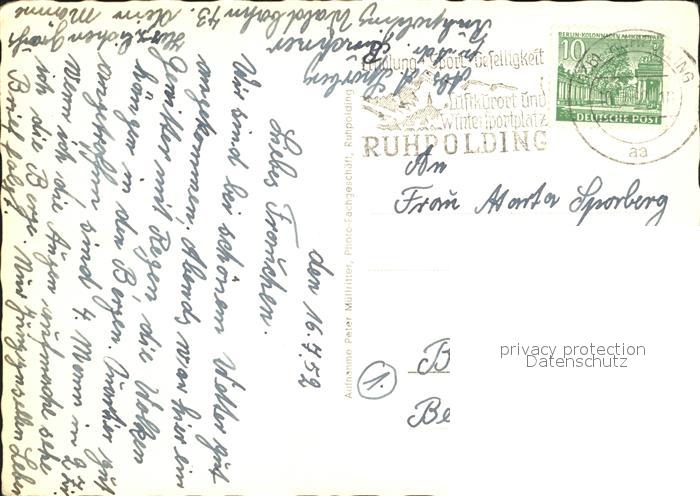 den 16.7.52
Liebes Frauchen.
Wir sind bei schönem Wetter gut
angekommen. Abends war hier ein
Gewitter mit Regen, die Wolken
hängen in den Bergen. Quartier gut
angetroffen sind 4 Mann in 2 Zi.
Wenn ich die Augen aufmache sehe
ich die Berge. Nun
Brief folgt.
Herzlichen Gruß
Dein Männe
Ruhpolding Waldbahn 73.
Abs. A. Sporberg
Aufnahme Peter Müllritter, Photo-Fachgeschäft, Ruhpolding
Erholung · Sport · Geselligkeit
Luftkurort und
Wintersportplatz
RUHPOLDING
aa
BERLIN-KOLONNADEN AM KLEISTPARK
10
DEUTSCHE POST
An
Frau Marta Sporberg
B
Be
1.
privacy protection
Datenschutz